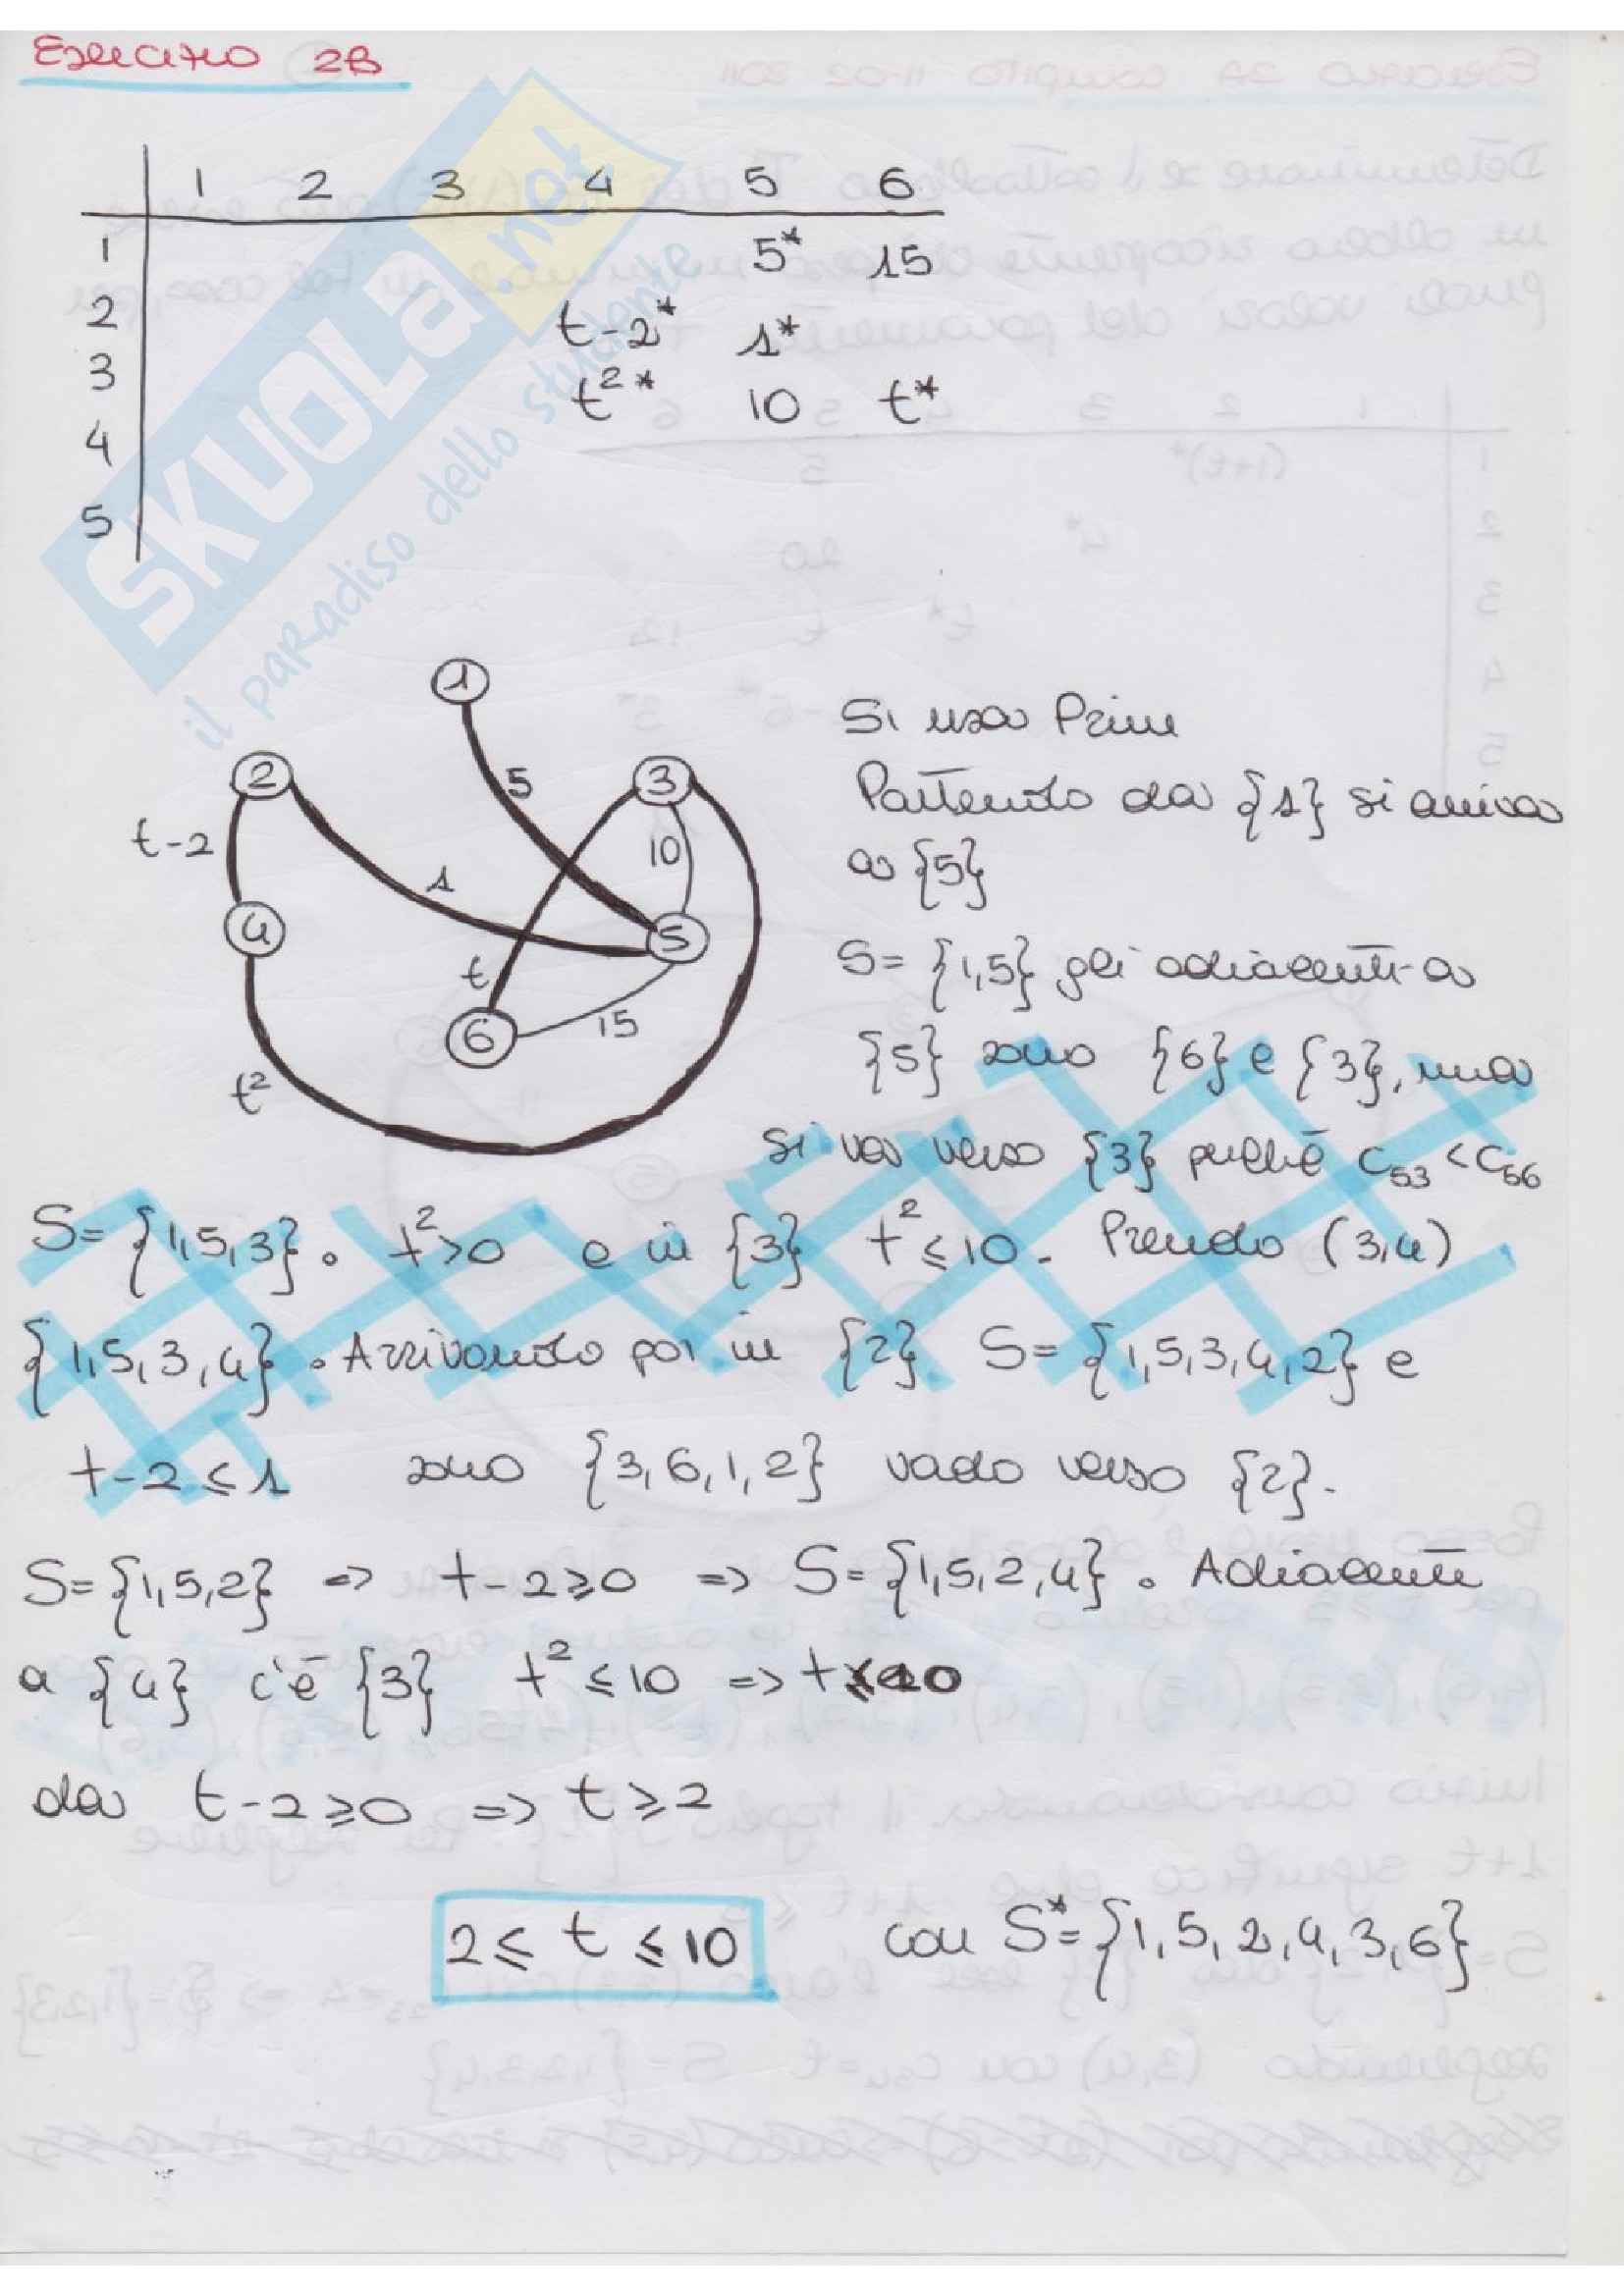 Esercizio 2B
1 2 3 4 5 6
1 5* 15
2 t-2* 1*
3 t²* 10 t*
4
5
SKUOLA.net
il paradiso dello studente
1
2
3
t-2
5
10
1
4
5
t
6
15
t²
Si usa Prim
Partendo da {1} si arriva
a {5}
S= {1,5} gli adiacenti a
{5} sono {6} e {3}, ma
si va verso {3} perchè C₅₃<C₅₆
S= {1,5,3}. t²>0 e in {3} t²≤10. Prendo (3,4)
{1,5,3,4}. Arrivando poi in {2} S= {1,5,3,4,2} e
t-2≤1 sono {3,6,1,2} vado verso {2}.
S={1,5,2} => t-2≥0 => S={1,5,2,4}. Adiacenti
a {4} c'è {3} t²≤10 => t≤10
da t-2≥0 => t≥2
2≤ t ≤10 con S*={1,5,2,4,3,6}